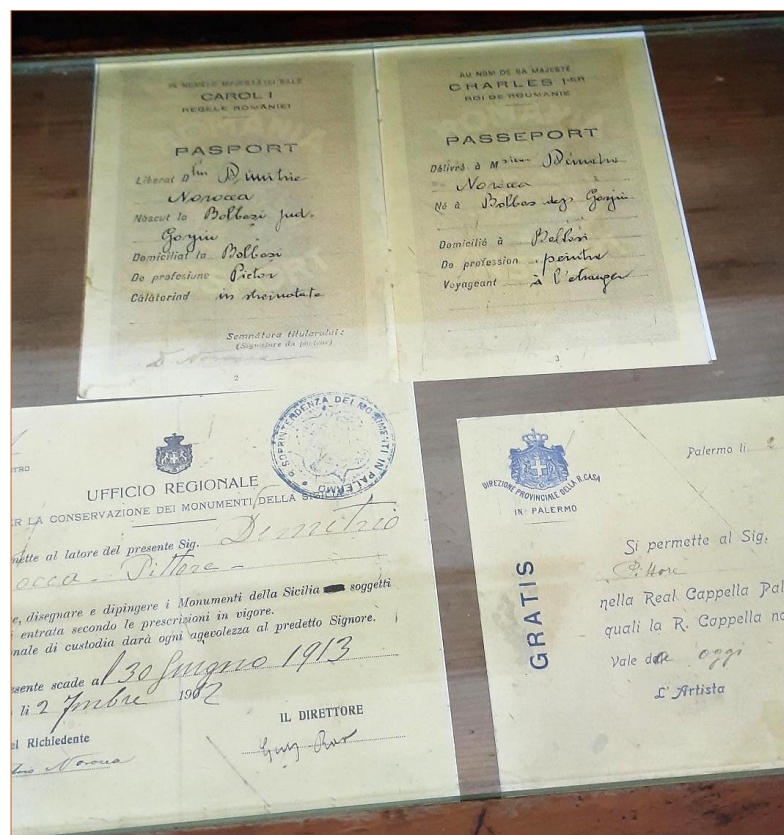 IN NUMELE MAJESTĂŢEI SALE
CAROL I
REGELE ROMÂNIEI
PASPORT
Liberat Dlui Dimitrie
Norocea
Născut la Bolbosi jud.
Gorjiu
Domiciliat la Bolbosi
De profesiune Pictor
Călătorind in streinatate
Semnătura titularului:
(Signature du porteur)
D Norocea
2
AU NOM DE SA MAJESTÉ
CHARLES I-ER
ROI DE ROUMANIE
PASSEPORT
Délivré à Msieur Démètre
Norocea
Né à Bolbos Gorjiu
Domicilié à
De profession peintre
Voyageant à l'étranger
3
UFFICIO REGIONALE
PER LA CONSERVAZIONE DEI MONUMENTI DELLA
SOPRINTENDENZA DEI MONUMENTI IN PALERMO
mette al latore del presente Sig. Demitrio
occa - Pittore -
e, disegnare e dipingere i Monumenti della Sicilia soggetti
i entrata secondo le prescrizioni in vigore.
onale di custodia darà ogni agevolezza al predetto Signore.
esente scade al 30 Giugno 1913
li 2 7mbre 1912
IL DIRETTORE
el Richiedente
Norocea
DIREZIONE PROVINCIALE DELLA R. CASA
IN PALERMO
Palermo li 2
GRATIS
Si permette al Sig.
Pittore
nella Real Cappella Pal
quali la R. Cappella no
Vale oggi
L'Artista